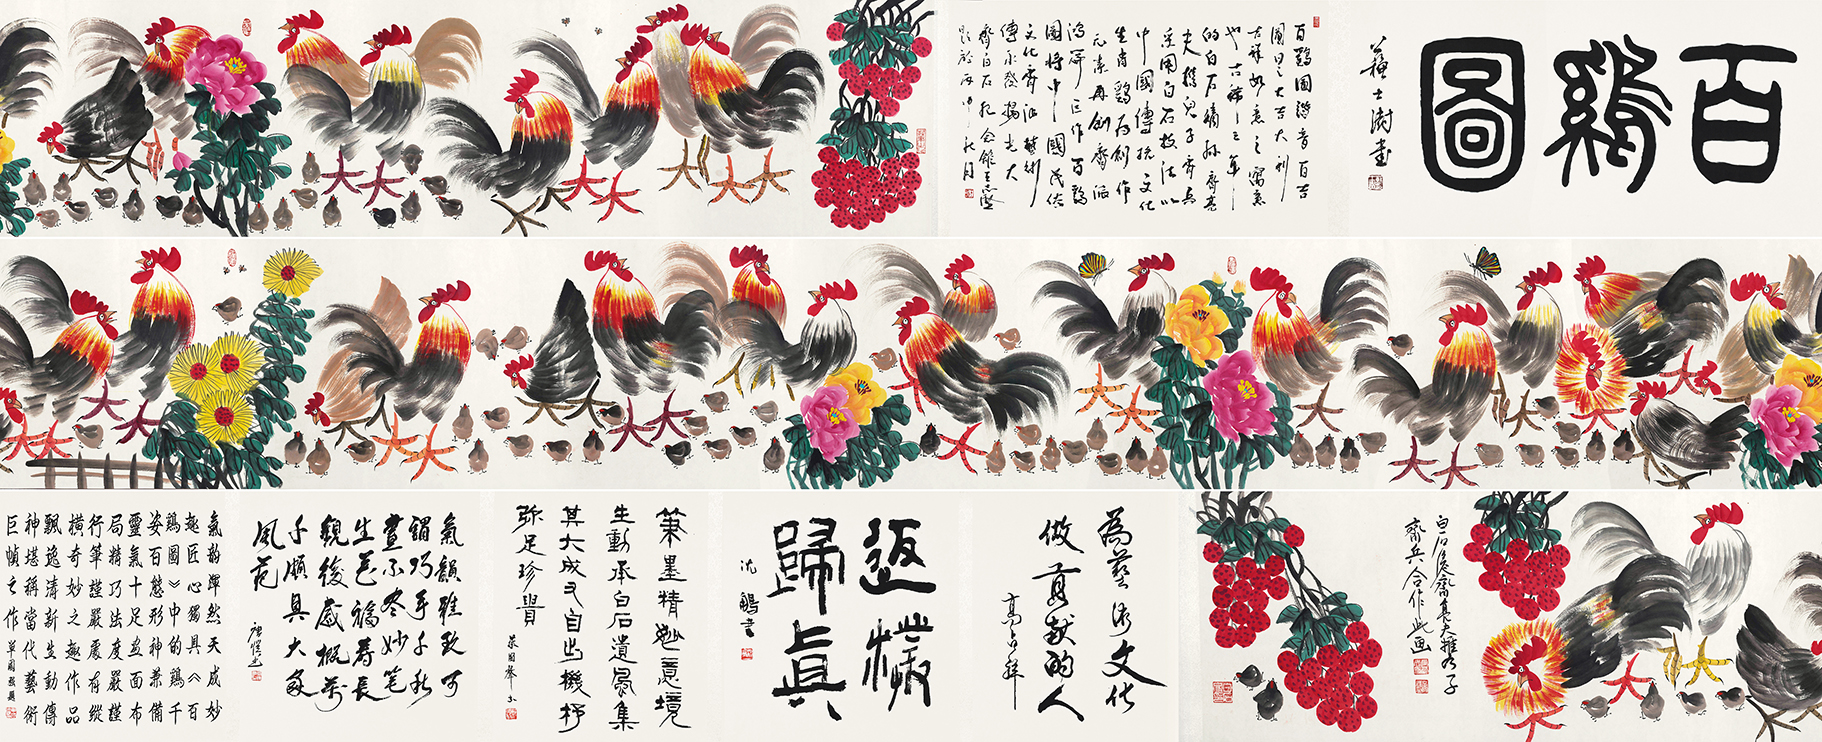 百鷄圖
蘇士澍書
百鷄圖諧音百吉
圖曰之大吉大利
吉祥如意之寓意
也古稀之年
的白石嫡孫齊亮
夫攜兒子齊兵
采用白石技法以
中國傳統文化
生肖鷄为創作
元素再創齊派
鴻篇巨作百鷄
圖將中國民俗
文化齊派藝術
傳承發揚光大
齊白石纪念館王志堅
題於丙申秋月
白石後裔齊良夫攜次子
齊兵合作此画
為藝術文化
做貢献的人
高占祥
返樸
歸真
沈鵬書
筆墨精妙意境
生動承白石遺風集
其大成又自出機抒
弥足珍貴
氣韻雅致可
謂巧手千秋
畫不尽妙笔
生花福壽長
観後感概萬
千頗具大家
風范
氣韵渾然天成妙
趣匠心獨具《百
鷄圖》中的鷄千
姿百態形神兼備
靈氣十足画面布
局精巧法度嚴謹
行筆謹嚴處有縱
橫奇妙之趣作品
飄逸清新生動傳
神堪稱當代藝術
巨幀之作 單國強題